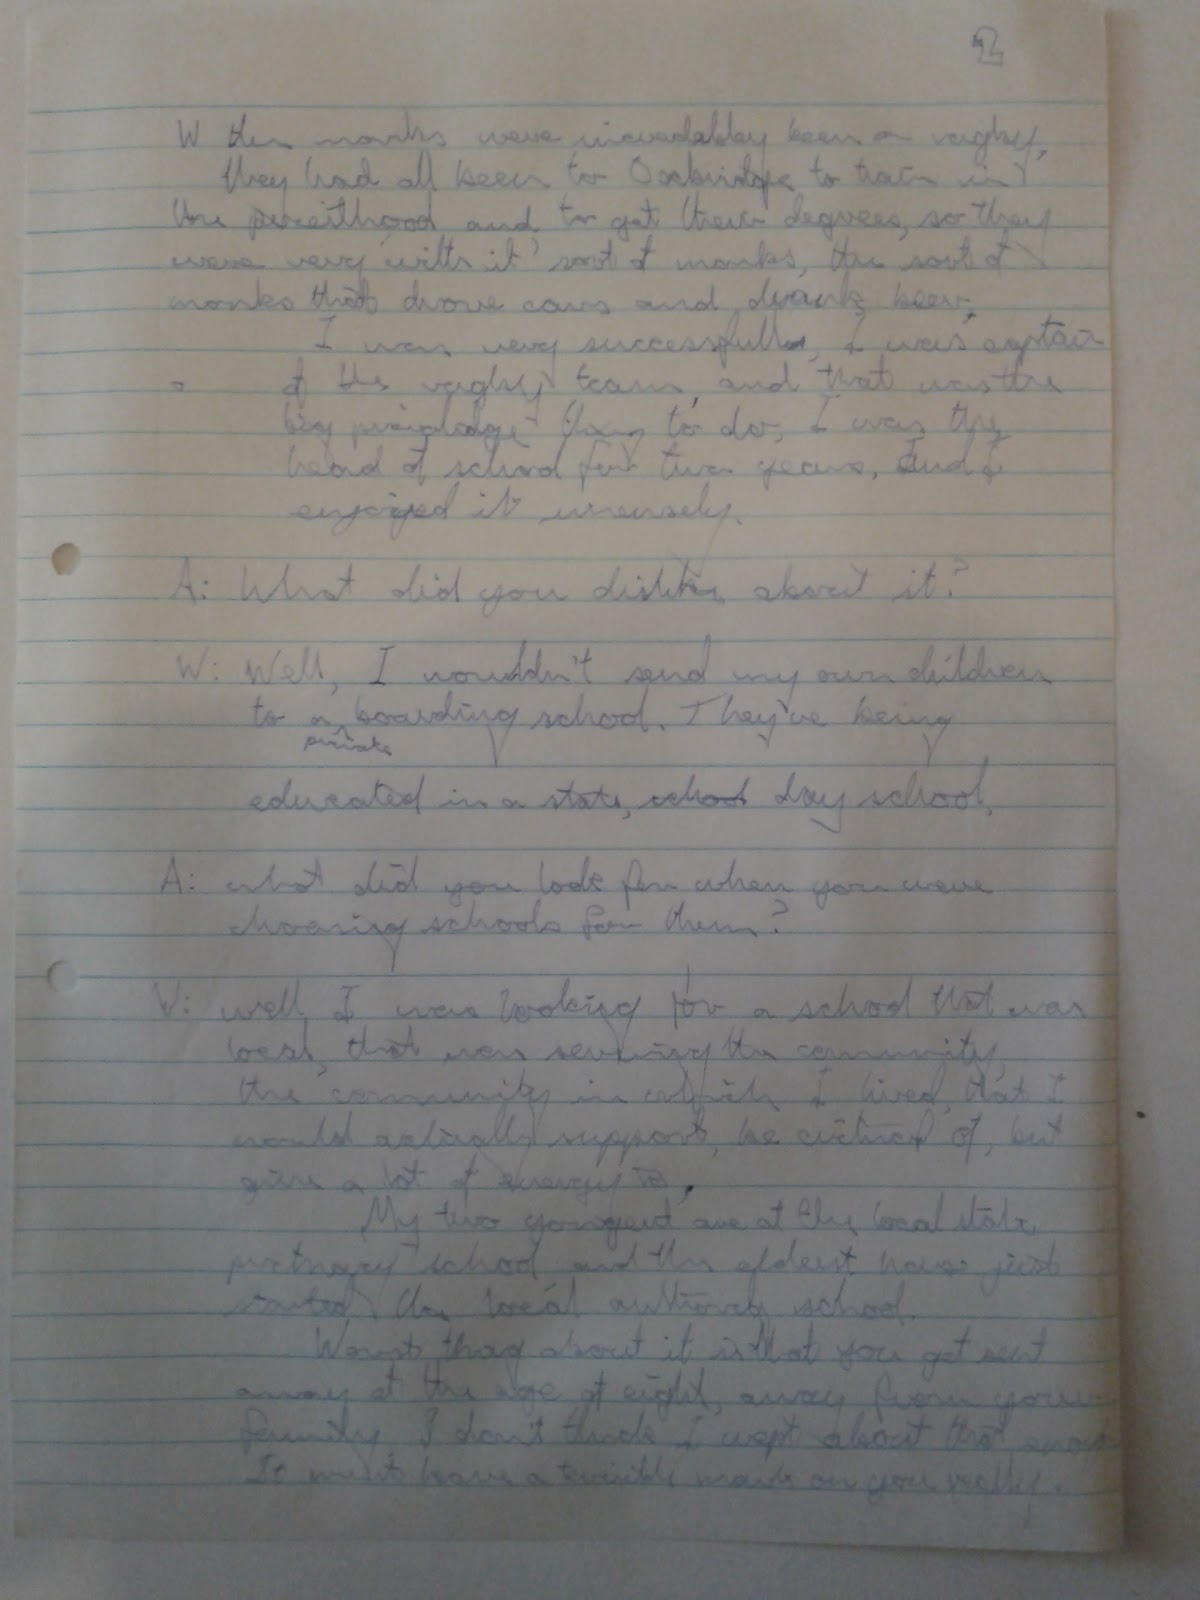 2
W the monks were increadablay keen on rugby,
they had all been to Oxbridge to train in
the preisthood and to get their degrees, so they
were very with it' sort of monks, the sort of
monks that drove cars and drank beer.
I was very successfull, I was captain
of the rugby team, and that was the
big thing to do, I was the
head of school for two years, and I
enjoyed it imensely.
A: What did you dislike about it?
W: Well, I wouldn't send my own children
to a boarding school. They're being
private
educated in a state, school day school.
A: what did you look for when you were
choosing schools for them?
W: well I was looking for a school that was
local, that was serving the community,
the community in which I lived, that I
would actually support, be critical of, but
give a lot of energy to.
My two youngest are at the local state
school and the eldest have just
started the local authority school.
Worst thing about it is that you get sent
away at the age of eight, away from your
family. I don't think I wept about that
It must leave a terrible mark on you really.